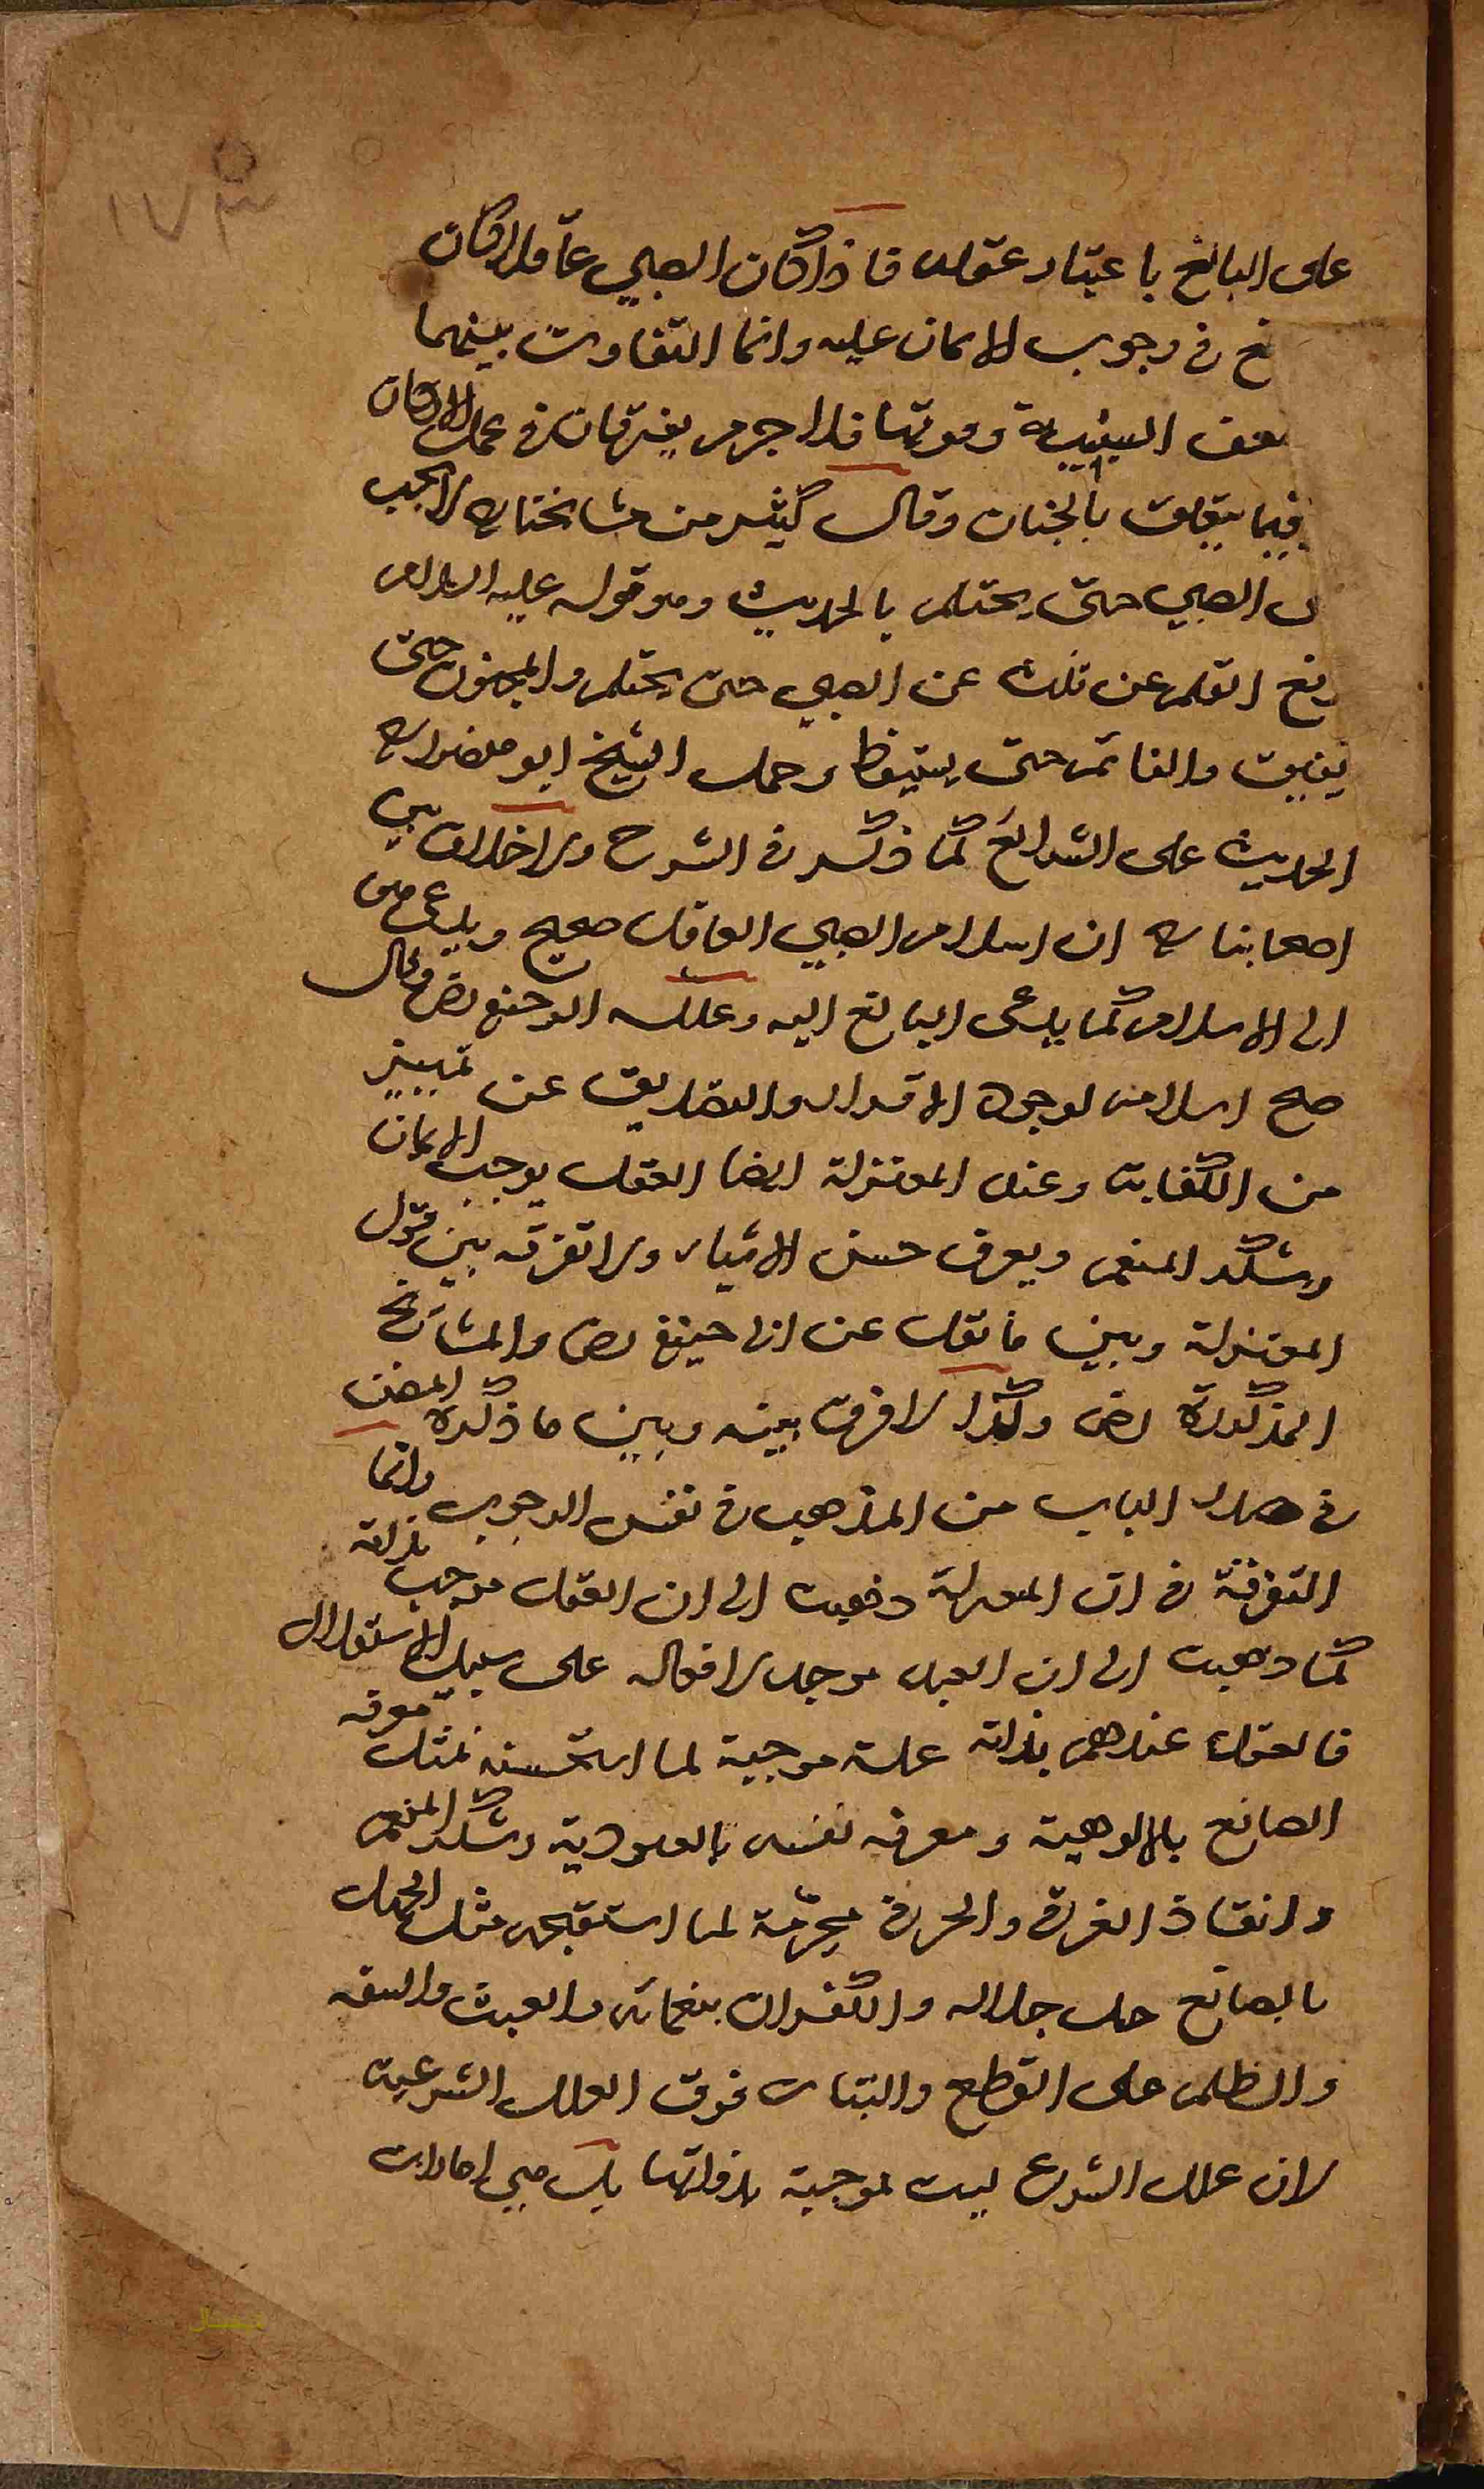 ١٧٣
على البالغ باعتبار عقله فاذا كان الصبي عاقلا كان
لغ في وجوب الايمان عليه وانما التفاوت بينهما
ضعف البنية وقوتها فلا جرم يفترقان في عمل الاركان
فيما يتعلق بالجنان وقال كثير من مشايخنا ره لا يجب
الصبي حتى يحتلم بالحديث وهو قوله عليه السلام
رفع القلم عن ثلث عن الصبي حتى يحتلم والمجنون حتى
يفيق والنائم حتى يستيقظ وحمل الشيخ ابو منصور ره
الحديث على الشرائع كما ذكر في الشرح ولا خلاف بين
اصحابنا ره ان اسلام الصبي العاقل صحيح ويدعى هو
الى الاسلام كما يدعى البالغ اليه وعلله ابو حنيفه رض وقال
صح اسلامه لوجود الاقرار والتصديق عن تمييز
من الكفاية وعند المعتزلة ايضا العقل يوجب الايمان
وشكر المنعم ويعرف حسن الاشياء ولا تفرقه بين قول
المعتزلة وبين ما نقل عن ابي حنيفه رض والمشائخ
المذكورة رض وكذا لا فرق بينه وبين ما ذكره المصنف
في هذا الباب من المذهب في نفس الوجوب وانما
التفرقة في ان المعتزلة ذهبت الى ان العقل موجب بذاته
كما ذهبت الى ان العبد موجد لافعاله على سبيل الاستقلال
فالعقل عندهم بذاته علة موجبة لما استحسنه مثل معرفه
الصانع بالالوهية ومعرفه نفسه بالعبودية وشكر المنعم
وانقاذ الغرقى والحرقى محرمة لما استقبحه مثل الجهل
بالصانع جل جلاله والكفران بنعمائه والعبث والسفه
والظلم على القطع والبتات فوق العلل الشرعية
لان علل الشرع ليست بموجبة بذواتها بل هي امارات